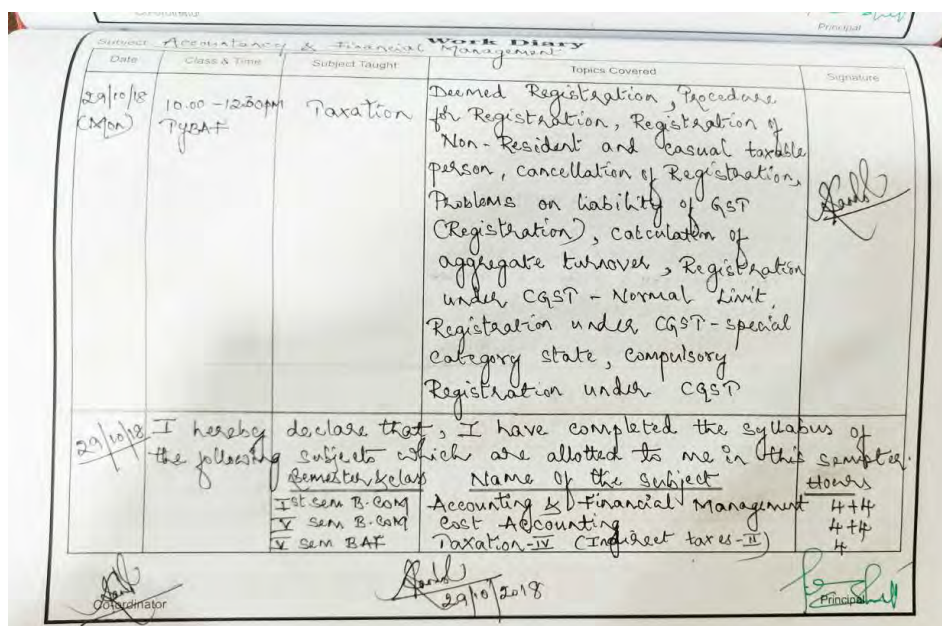 Co-ordinator
Principal
Work Diary
Subject Accountancy & Financial Management
Date Class & Time Subject Taught Topics Covered Signature
29/10/18 10.00 - 12.30pm Taxation Deemed Registration, Procedure
(Mon) TYBAF for Registration, Registration of
Non-Resident and casual taxable
person, cancellation of Registration,
Problems on liability of GST
(Registration), calculation of
aggregate turnover, Registration
under CGST - Normal Limit,
Registration under CGST - special
category state, compulsory
Registration under CGST
29/10/18 I hereby declare that, I have completed the syllabus of
the following subjects which are allotted to me in this semester.
Semester & class Name of the subject Hours
Ist sem B.COM Accounting & Financial Management 4+4
V sem B.COM Cost Accounting 4+4
V sem BAF Taxation-IV (Indirect taxes-II) 4
Co-ordinator
29/10/2018
Principal